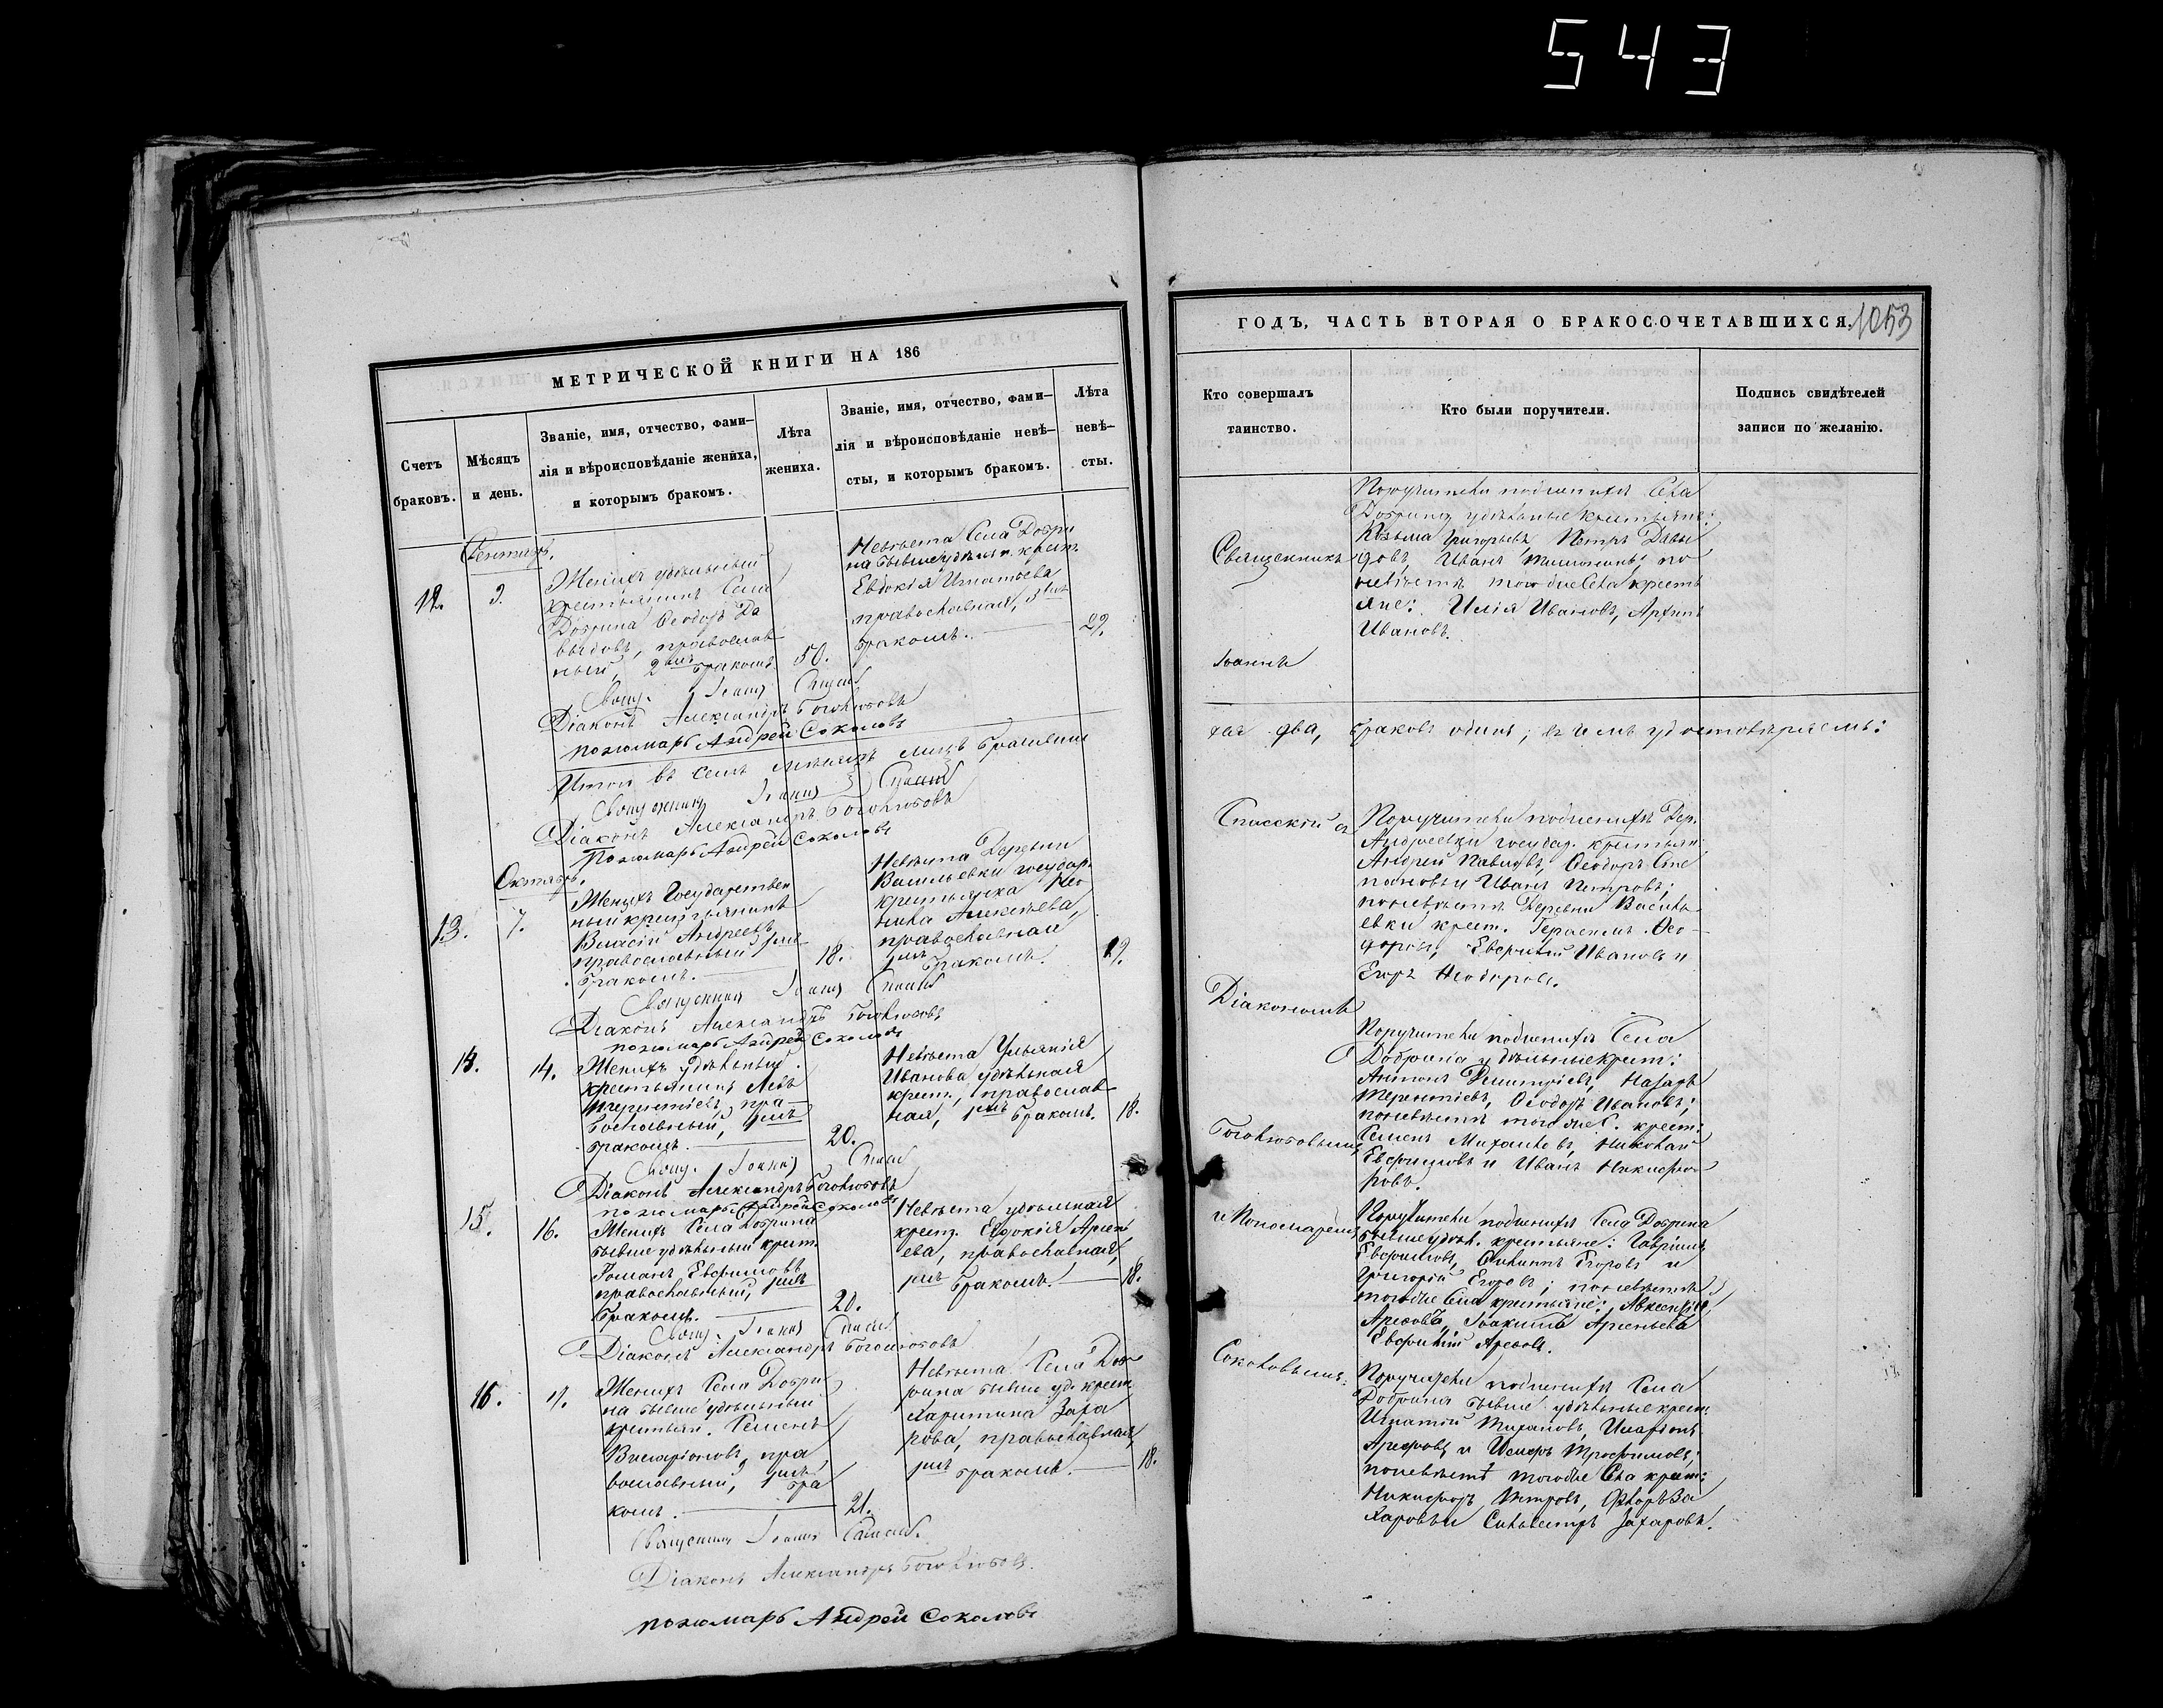 543
МЕТРИЧЕСКОЙ КНИГИ НА 186
Счетъ
браковъ.
Мѣсяцъ
и день.
Званіе, имя, отчество, фами-
лія и вѣроисповѣданіе жениха,
и которымъ бракомъ.
Лѣта
жениха.
Званіе, имя, отчество, фами-
лія и вѣроисповѣданіе невѣ-
сты, и которымъ бракомъ.
Лѣта
невѣ-
сты.
Сентябрь.
12.
9.
Женихъ удѣльный
крестьянинъ Села
Добрина Ѳеодоръ Да
выдовъ, православ
ный, 2мъ бракомъ.
50.
Невѣста Села Добри
на бывше удѣльн. крест.
Евдокія Игнатьева
православная,
бракомъ.
29.
Свящ. Іоаннъ
Діаконъ Александръ Боголюбовъ
пономарь Андрей Соколовъ
Итого въ семъ мѣсяцѣ лицъ брачивши
Священникъ Іоаннъ
Діаконъ Александръ Боголюбовъ
Пономарь Андрей Соколовъ
Октябрь.
13.
7.
Женихъ Государствен
ный крестьянинъ
Власій Андреевъ
православный 1мъ
бракомъ.
18.
Невѣста Деревни
Васильевки государ.
крестьянка Ѳео
Алексѣева,
православная
1мъ бракомъ.
19.
Священникъ Іоаннъ
Діаконъ Александръ Боголюбовъ
пономарь Андрей Соколовъ
14.
14.
Женихъ удѣльный
крестьянинъ Левъ
Терентіевъ, пра
вославный, 1мъ
бракомъ.
20.
Невѣста Ульянія
Иванова удѣльная
крест., православ
ная, 1мъ бракомъ.
18.
Свящ. Іоаннъ
Діаконъ Александръ Боголюбовъ
пономарь Андрей Соколовъ
15.
16.
Женихъ Села Добрина
бывше удѣльный крест.
Романъ Евфимовъ
православный, 1мъ
бракомъ.
20.
Невѣста удѣльная
крест. Евдокія Арсень
ева, православная,
1мъ бракомъ.
18.
Свящ. Іоаннъ
Діаконъ Александръ Боголюбовъ
16.
Женихъ Села Добри
на бывше удѣльный
крестьян. Семенъ
пра
вославный, 1мъ бра
комъ.
21.
Невѣста Села Доб
рина бывше уд. крест.
Харитина Заха
рова, православная,
1мъ бракомъ.
18.
Священникъ Іоаннъ
Діаконъ Александръ Боголюбовъ.
пономарь Андрей Соколовъ
ГОДЪ, ЧАСТЬ ВТОРАЯ О БРАКОСОЧЕТАВШИХСЯ.
1053
Кто совершалъ
таинство.
Кто были поручители.
Подпись свидѣтелей
записи по желанію.
Священникъ
Іоаннъ
Поручители по женихѣ Села
Добрина удѣльные крестьяне:
Козьма Григорьевъ, Петръ Давы
довъ, Иванъ по
невѣстѣ тогоже Села кресть
яне: Илія Ивановъ, Архипъ
Ивановъ.
хся два, браковъ одинъ; въ чемъ удостовѣряемъ:
Спасскій съ
Діакономъ
Боголюбовымъ
и Пономаремъ
Соколовымъ:
Поручители по женихѣ Дер.
Андреевки государ. крестьян:
Андрей Павловъ, Ѳеодоръ Сте
пановъ и Иванъ Петровъ;
по невѣстѣ Деревни Василь
евки крест. Герасимъ Ѳео-
доровъ, Евфимій Ивановъ и
Егоръ Ѳеодоровъ.
Поручители по женихѣ Села
Добрина удѣльные крест:
Антонъ Димитріевъ, Назаръ
Терентіевъ, Ѳеодоръ Ивановъ;
по невѣстѣ тогоже С. крест:
Семенъ Михайловъ, Николай
Евфимовъ и Иванъ Никифо
ровъ.
Поручители по женихѣ Села Добрина
бывше удѣл. крестьяне: Гавріилъ
Евфимовъ, Егоровъ и
Григорій Егоровъ; по невѣстѣ
тогоже Села крестьяне:
Іоакимъ Арсеньевъ
Евфимій
Поручители по женихѣ Села
Добрина бывше удѣльные крест:
Игнатій Иларіонъ
и Трофимовъ;
по невѣстѣ тогоже Села крест:
Никифоръ Петровъ, Флоръ За
харовъ и Сильвестръ Захаровъ.